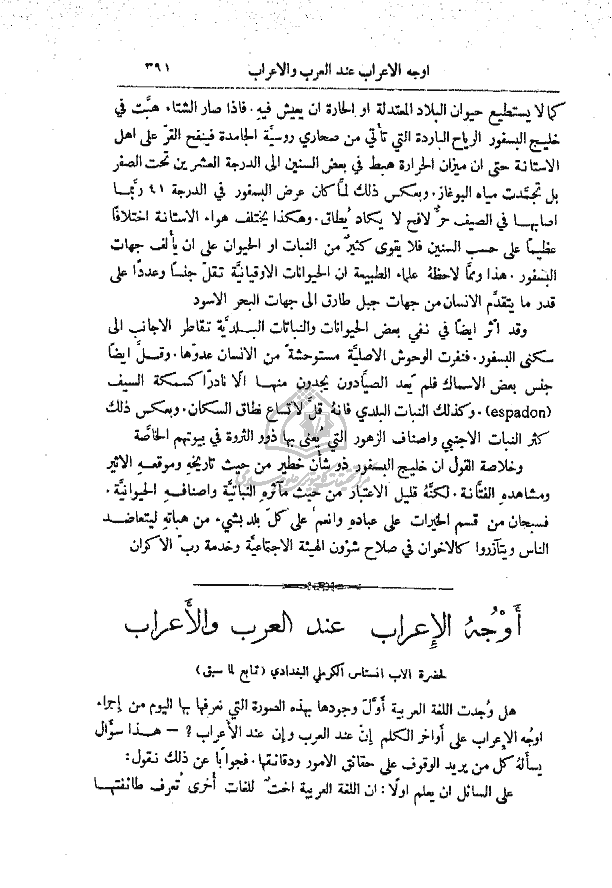 اوجه الاعراب عند العرب والاعراب ٣٩١
كما لا يستطيع حيوان البلاد المعتدلة او الحارة ان يعيش فيهِ. فاذا صار الشتاء هبَّت في
خليج البسفور الرياح الباردة التي تأتي من صحاري روسيَّة الجامدة فينفح القرّ على اهل
الاستانة حتى ان ميزان الحرارة هبط في بعض السنين الى الدرجة العشرين تحت الصفر
بل تجمَّدت مياه البوغاز. وبعكس ذلك لمَّا كان عرض البسفور في الدرجة ٤١ ربَّما
اصابها في الصيف حرٌّ لافح لا يكاد يُطاق. وهكذا يختلف هواء الاستانة اختلافًا
عظيمًا على حسب السنين فلا يقوى كثيرٌ من النبات او الحيوان على ان يألف جهات
البسفور. هذا وممَّا لاحظهُ علماء الطبيعة ان الحيوانات الاوقيانيَّة تقلّ جنسًا وعددًا على
قدر ما يتقدَّم الانسان من جهات جبل طارق الى جهات البحر الاسود
وقد اثر ايضًا في نفي بعض الحيوانات والنباتات البلديَّة تقاطر الاجانب الى
سكنى البسفور. فنفرت الوحوش الاصليَّة مستوحشةً من الانسان عدوّها. وقلَّ ايضًا
جنس بعض الاسماك فلم يَعد الصيَّادون يجدون منها الَّا نادرًا كسمكة السيف
(espadon). وكذلك النبات البلدي فانهُ قلَّ لاتساع نطاق السكان. وبعكس ذلك
كثر النبات الاجنبي واصناف الزهور التي يُعنى بها ذوو الثروة في بيوتهم الخاصَّة
وخلاصة القول ان خليج البسفور ذو شأن خطير من حيث تاريخهِ وموقعهِ الاثير
ومشاهدهِ الفتَّانة. لكنَّهُ قليل الاعتبار من حيث مآثرهِ النباتيَّة واصنافهِ الحيوانيَّة.
فسبحان من قسم الخيرات على عبادهِ وانعم على كلّ بلد بشيء من هباتهِ ليتعاضد
الناس ويتآزروا كالاخوان في صلاح شؤون الهيئة الاجتماعيَّة وخدمة ربّ الاكوان
أَوْجُهُ الإِعراب عند العرب والأَعراب
لحضرة الاب انستاس الكرملي البغدادي (تابع لما سبق)
هل وُجدت اللغة العربية أوَّلَ وجودها بهذه الصورة التي نعرفها بها اليوم من إجراء
اوجُه الإعراب على أواخر الكلم إنْ عند العرب وإن عند الأعراب؟ — هذا سؤال
يسألهُ كل من يريد الوقوف على حقائق الامور ودقائقها. فجوابًا عن ذلك نقول:
على السائل ان يعلم اولًا: ان اللغة العربية اختٌ للغات أُخرى تُعرف طائفتها